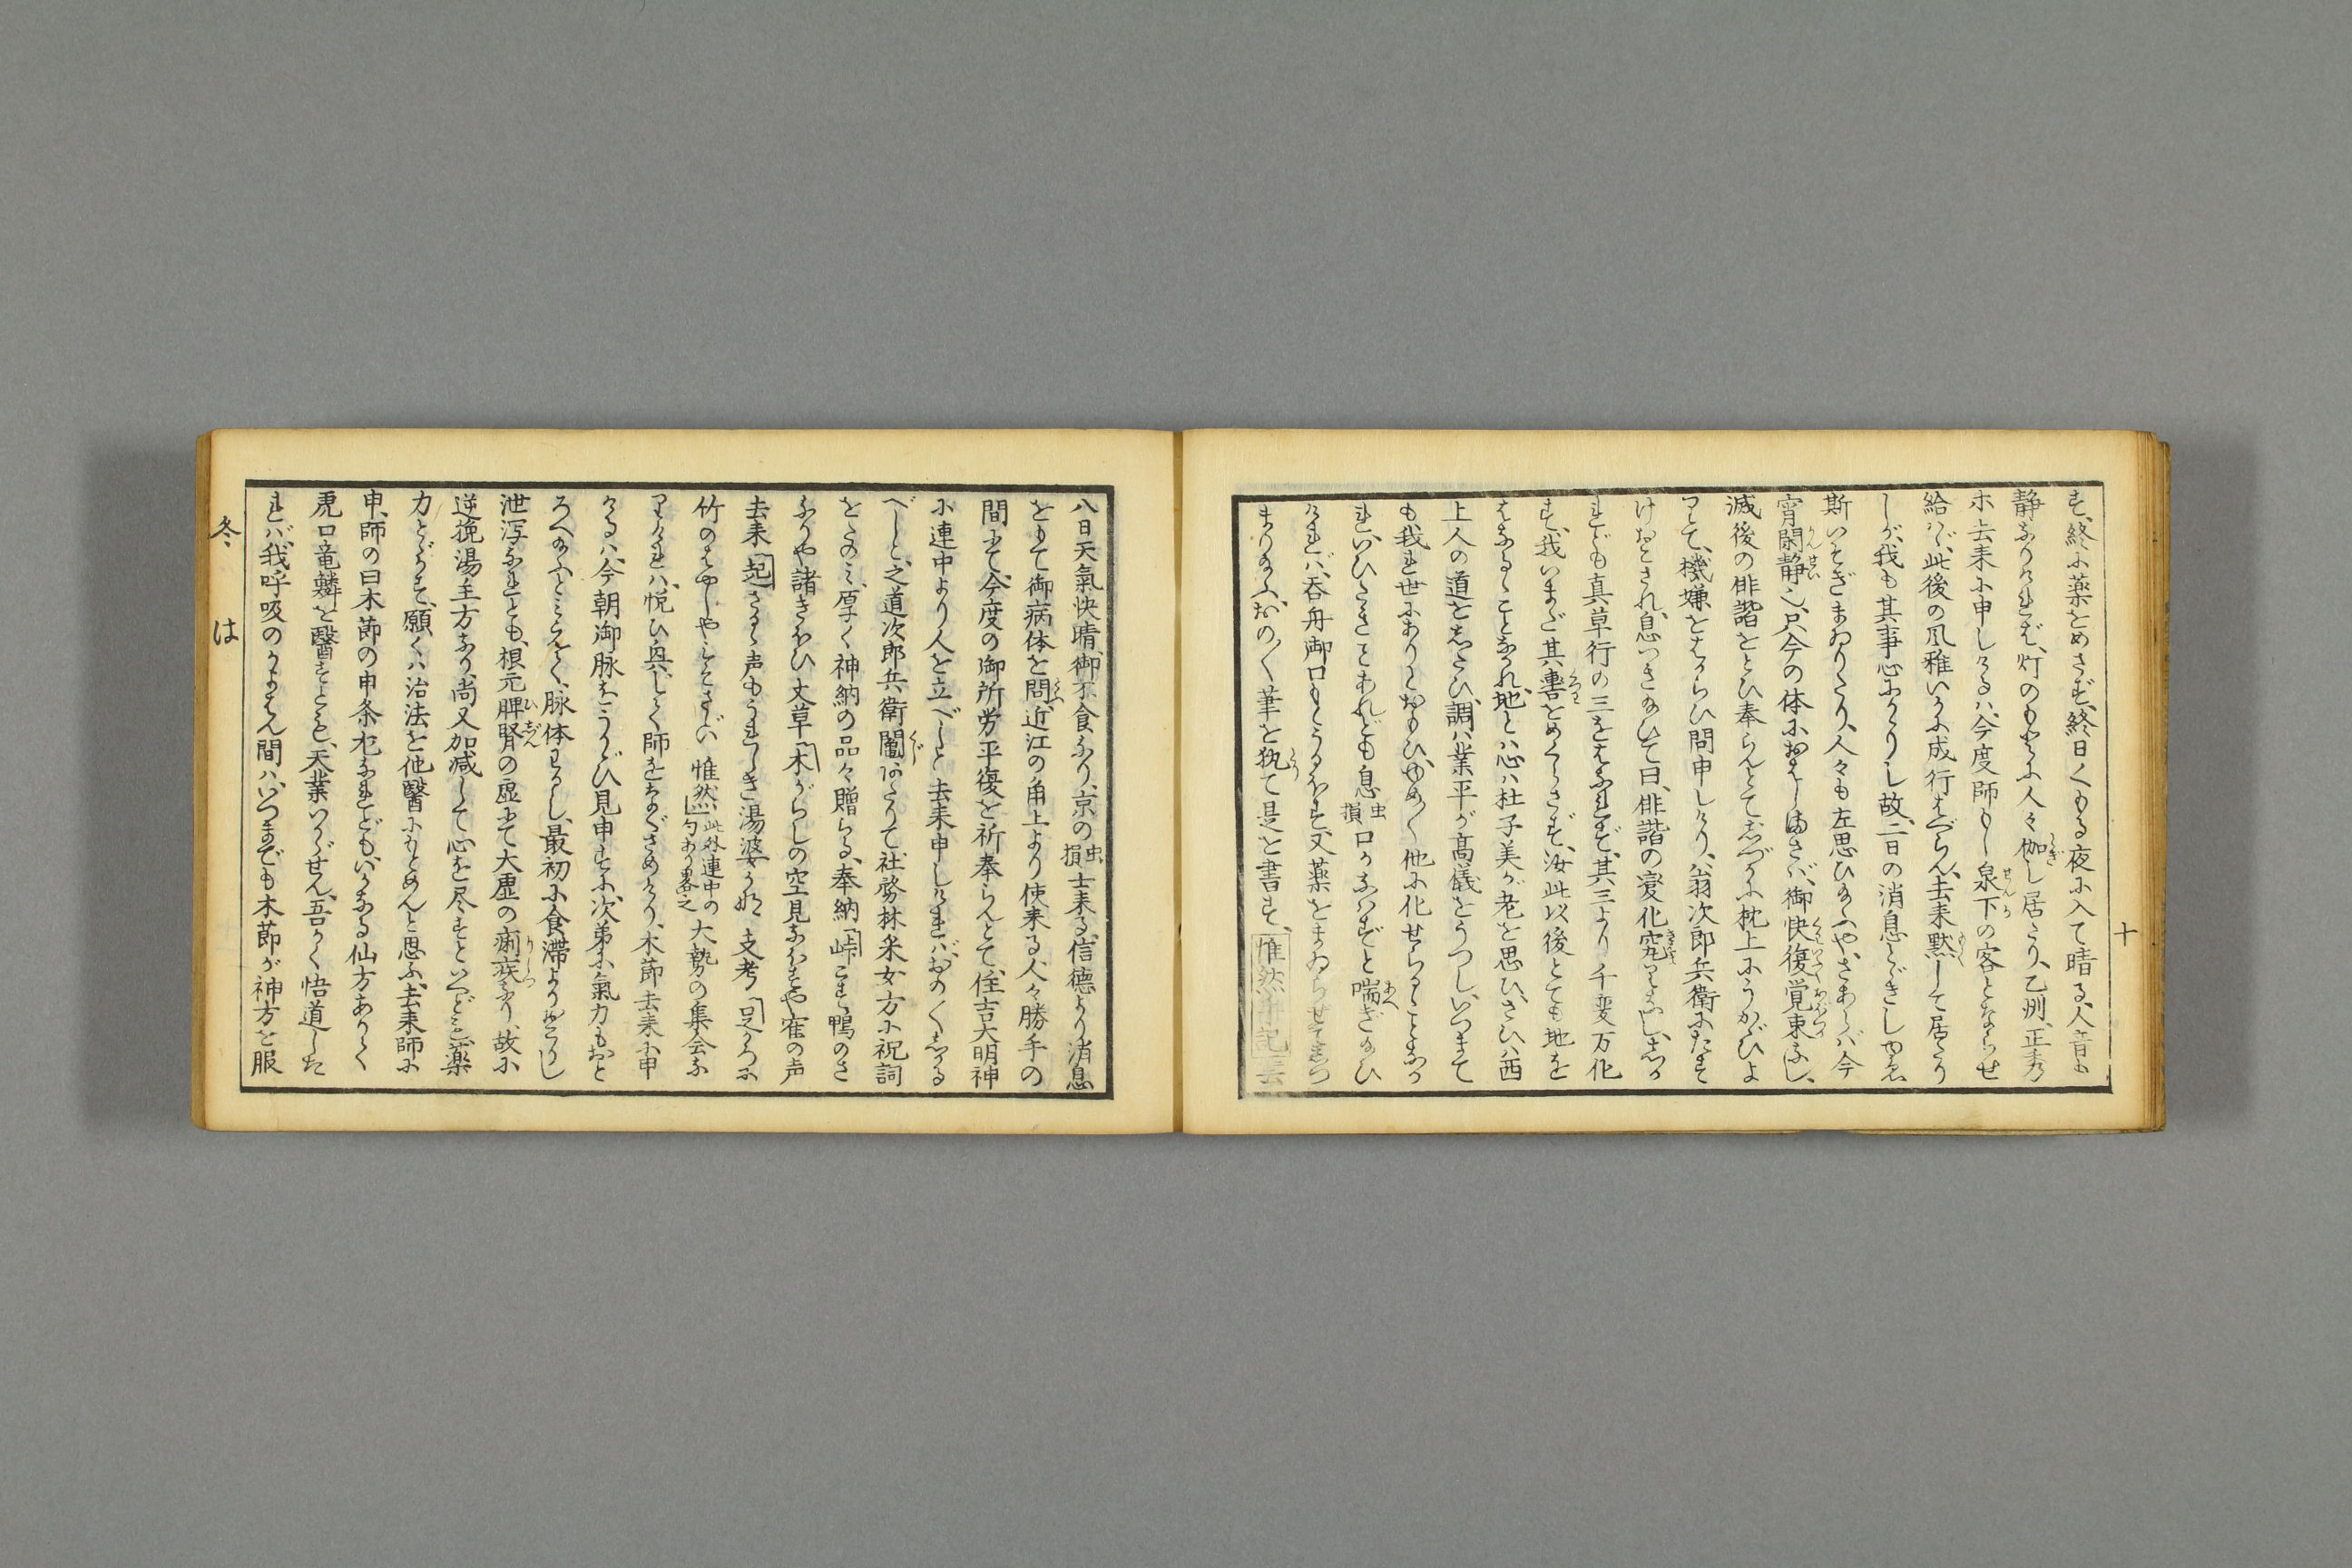 す、終に薬をめさず、終日くもる夜に入て晴る、人音も
静なりければ、灯のもとに人々伽し居たり、乙州、正秀
ホ去来に申しけるハ、今度師もし泉下の客とならせ
給ハヾ、此後の風雅いかに成行はべらん、去来黙して居たり
しが、我も其事心にかゝりし故、二日の消息とゞきし申
斯いそぎまゐりたり、人々も左思ひ給ふや、さあらバ今
宵閑静也、只今の体におはしまさバ、御快復覚束なし、
滅後の俳諧をとひ奉らんとてしづかに枕上にうかゞひよ
りて、機嫌をはからひ問申しけり、翁次郎兵衛にたす
けおこされ、息つき給ひて曰、俳諧の変化究りなし、しか
れども真草行の三をはなれず、其三より千変万化
す、我いまだ其轡をめぐらさず、汝此以後とても地を
はなるゝことなかれ、地とハ心ハ杜子美が老を思ひ、さびハ西
上人の道をしたひ、調ハ業平が高儀をうつし、いつまで
も我世にありとおもひ、ゆめ〳〵他に化せらるゝことなか
れ、いひたきことあれども息虫損口かなハずと喘ぎ給ひ
ければ、呑舟御口をうるほす、又薬をまゐらせてしつ
まり給ふ、おの〳〵筆を執て是を書す、惟然子記云
十
八日天氣快晴、御不食なり、京の虫損士来る、信德より消息
をもて御病体を問、近江の角上より使来る、人々勝手の
間にて、今度の御所労平復を祈奉らんとて、住吉大明神
に連中より人を立べしと去来申しければ、おの〳〵しかる
べしと、之道次郎兵衛鬮にあたりて社務林采女方に祝詞
をたのミ、厚く神納の品々贈らる、奉納峠こす鴨のさ
なりや諸きほひ 丈草 木がらしの空見なほすや雀の声
去来 起さるゝ声もうれしき湯婆かな 支考 足がろに
竹のはやしやみそさゞい 惟然 此外連中の句あり畧之 大勢の集会な
りければ、悦ひ興じて師をなぐさめけり、木節去来に申
けるハ、今朝御脉をうかゞひ見申すに、次第に氣力もおと
ろへ給ふとミえて、脉体わるし、最初に食滞より発りし
泄泻なれとも、根元脾腎の虚にて大虚の痢疾なり、故に
逆挽湯主方なり、尚又加减して心を尽すといへども、薬
力とゞかず、願くハ治法を他醫にもとめんと思ふ、去来師に
申、師の曰木節の申条尤なれども、いかなる仙方ありて
虎口竜鱗を醫すとも、天業いかゞせん、吾かく悟道した
れバ、我呼吸のかよはん間ハ、いつまでも木節が神方を服
冬 は